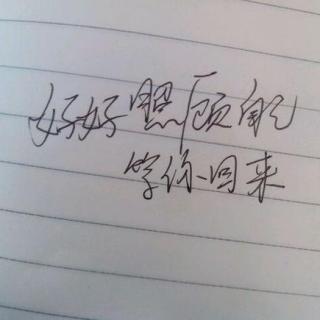 好好照顾自己
等你回来